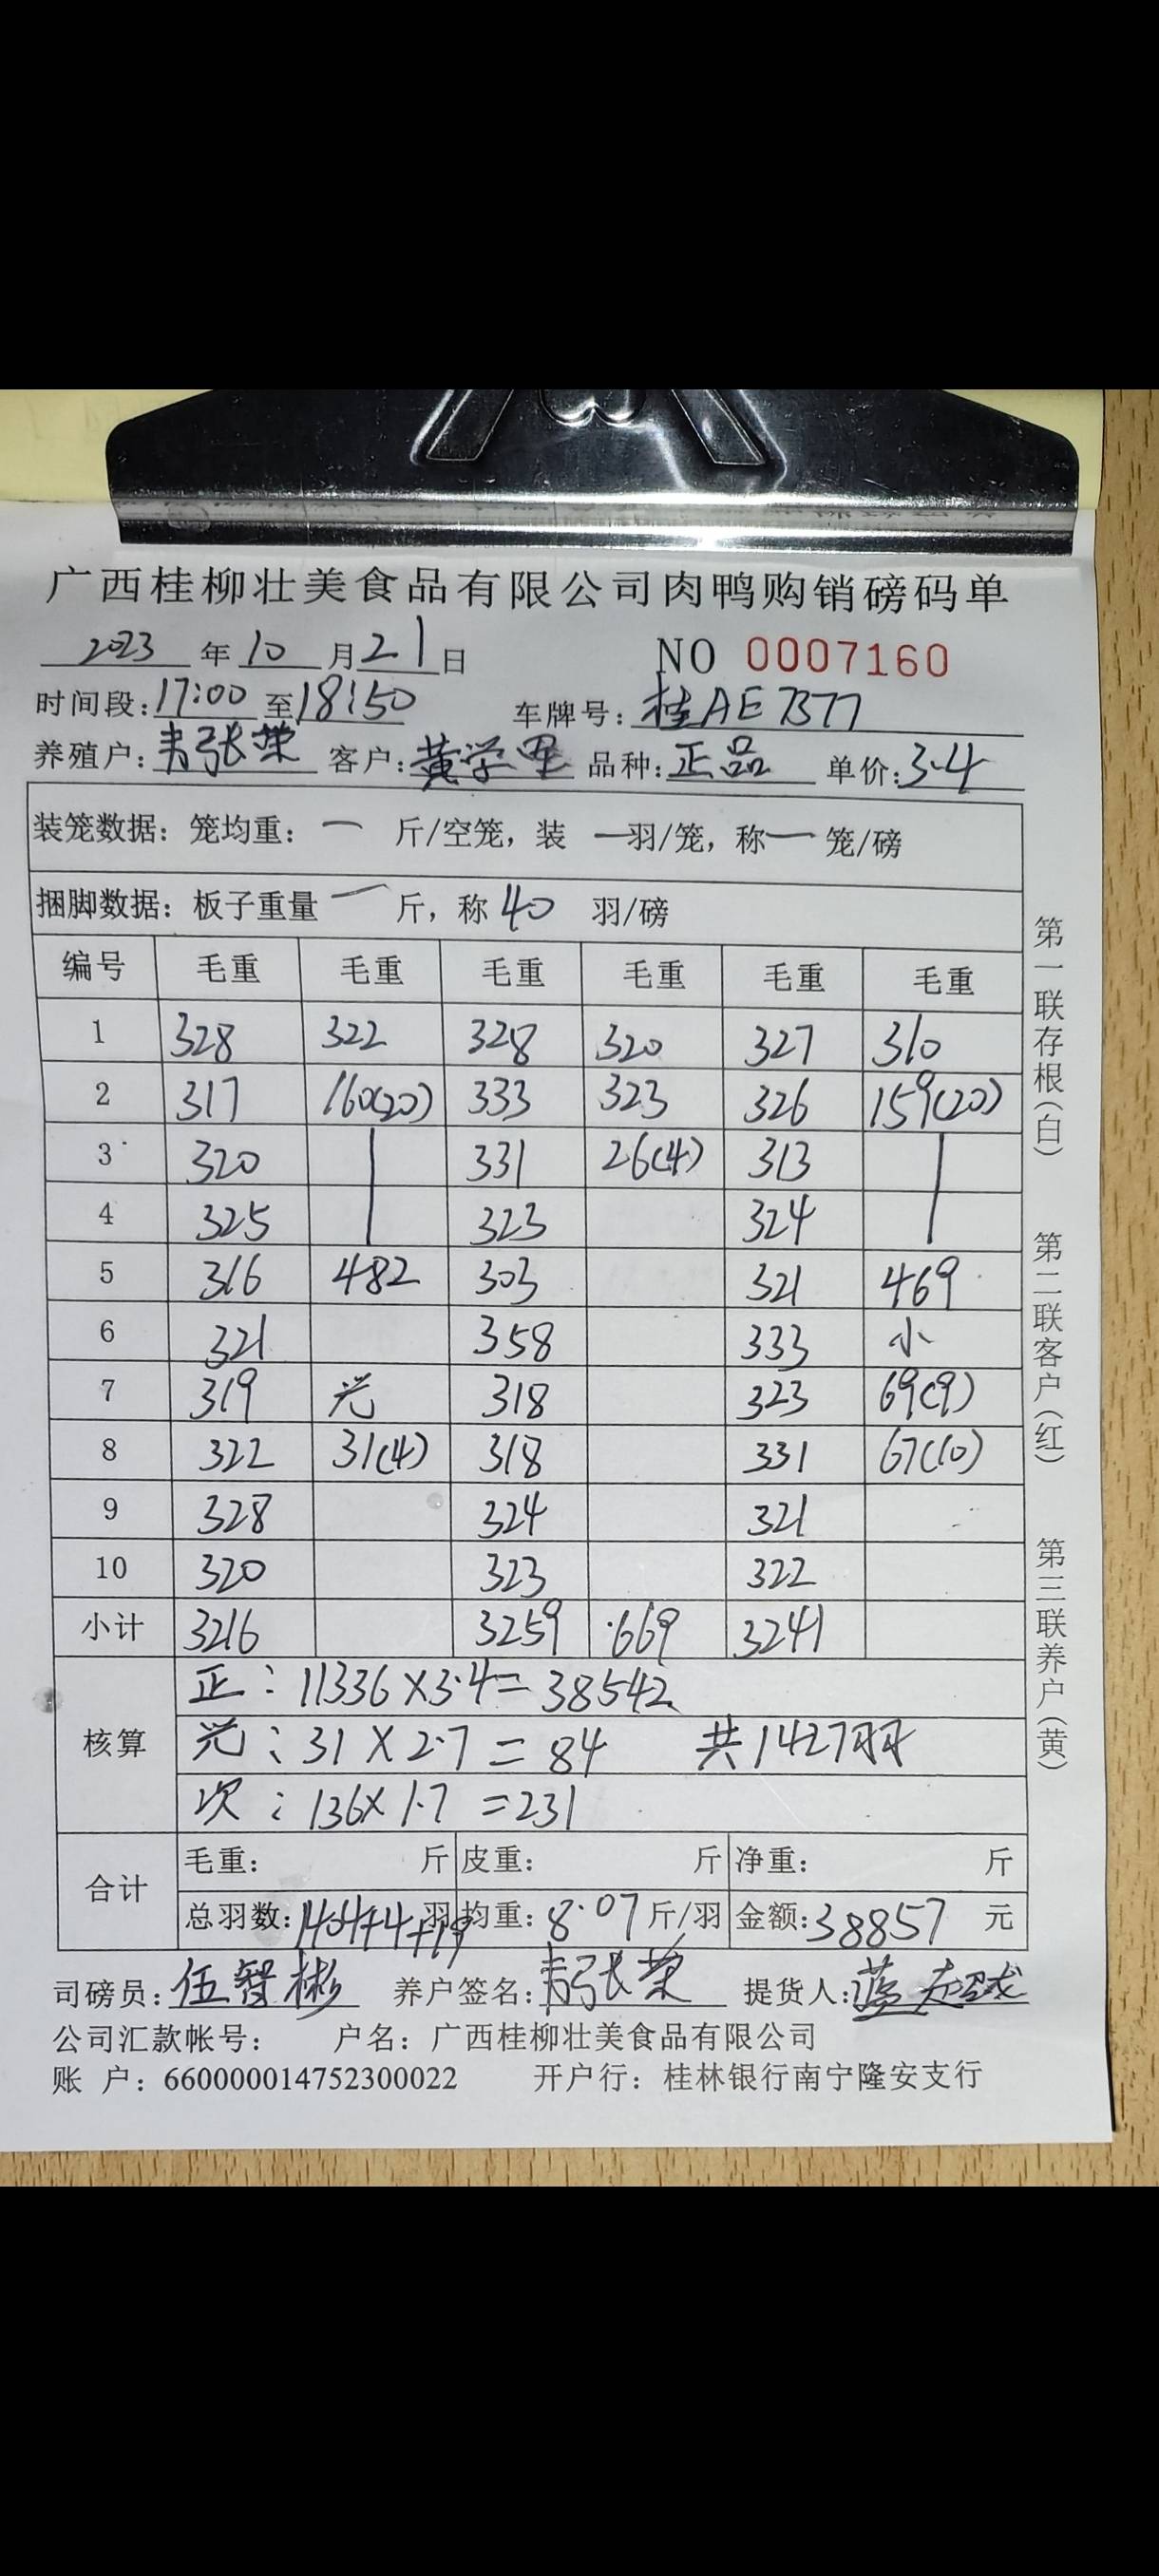 广西桂柳壮美食品有限公司肉鸭购销磅码单
2023 年 10 月 21 日 NO 0007160
时间段: 17:00 至 18:50 车牌号: 桂AE7377
养殖户: 韦张荣 客户: 黄学里 品种: 正品 单价: 3.4
装笼数据: 笼均重: 一 斤/空笼, 装 一 羽/笼, 称 一 笼/磅
捆脚数据: 板子重量 一 斤, 称 40 羽/磅
编号 毛重 毛重 毛重 毛重 毛重 毛重
1 328 322 328 320 327 310
2 317 160(20) 333 323 326 159(20)
3 320 | 331 26(4) 313 |
4 325 | 323 324 |
5 316 482 303 321 469
6 321 358 333 小
7 319 光 318 323 69(9)
8 322 31(4) 318 331 67(10)
9 328 324 321
10 320 323 322
小计 3216 3259 669 3241
核算 正: 11336×3.4=38542
光: 31×2.7=84 共1427羽
次: 136×1.7=231
合计 毛重: 斤 皮重: 斤 净重: 斤
总羽数: 1404+4+19 羽 均重: 8.07 斤/羽 金额: 38857 元
司磅员: 伍智彬 养户签名: 韦张荣 提货人: 蓝
公司汇款帐号: 户名: 广西桂柳壮美食品有限公司
账 户: 660000014752300022 开户行: 桂林银行南宁隆安支行
第一联存根(白)
第二联客户(红)
第三联养户(黄)